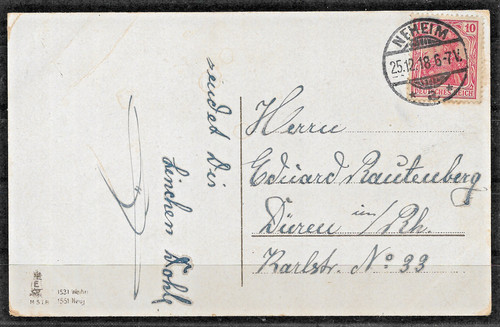 sendet Dir
Linchen Dohle
NEHEIM
25.12.18.6-7V.
* 2 *
10
DEUTSCHES REICH
Herrn
Eduard Rautenberg
Düren im/Rh.
Karlstr. No 33
1531 Weihn
1551 Neuj